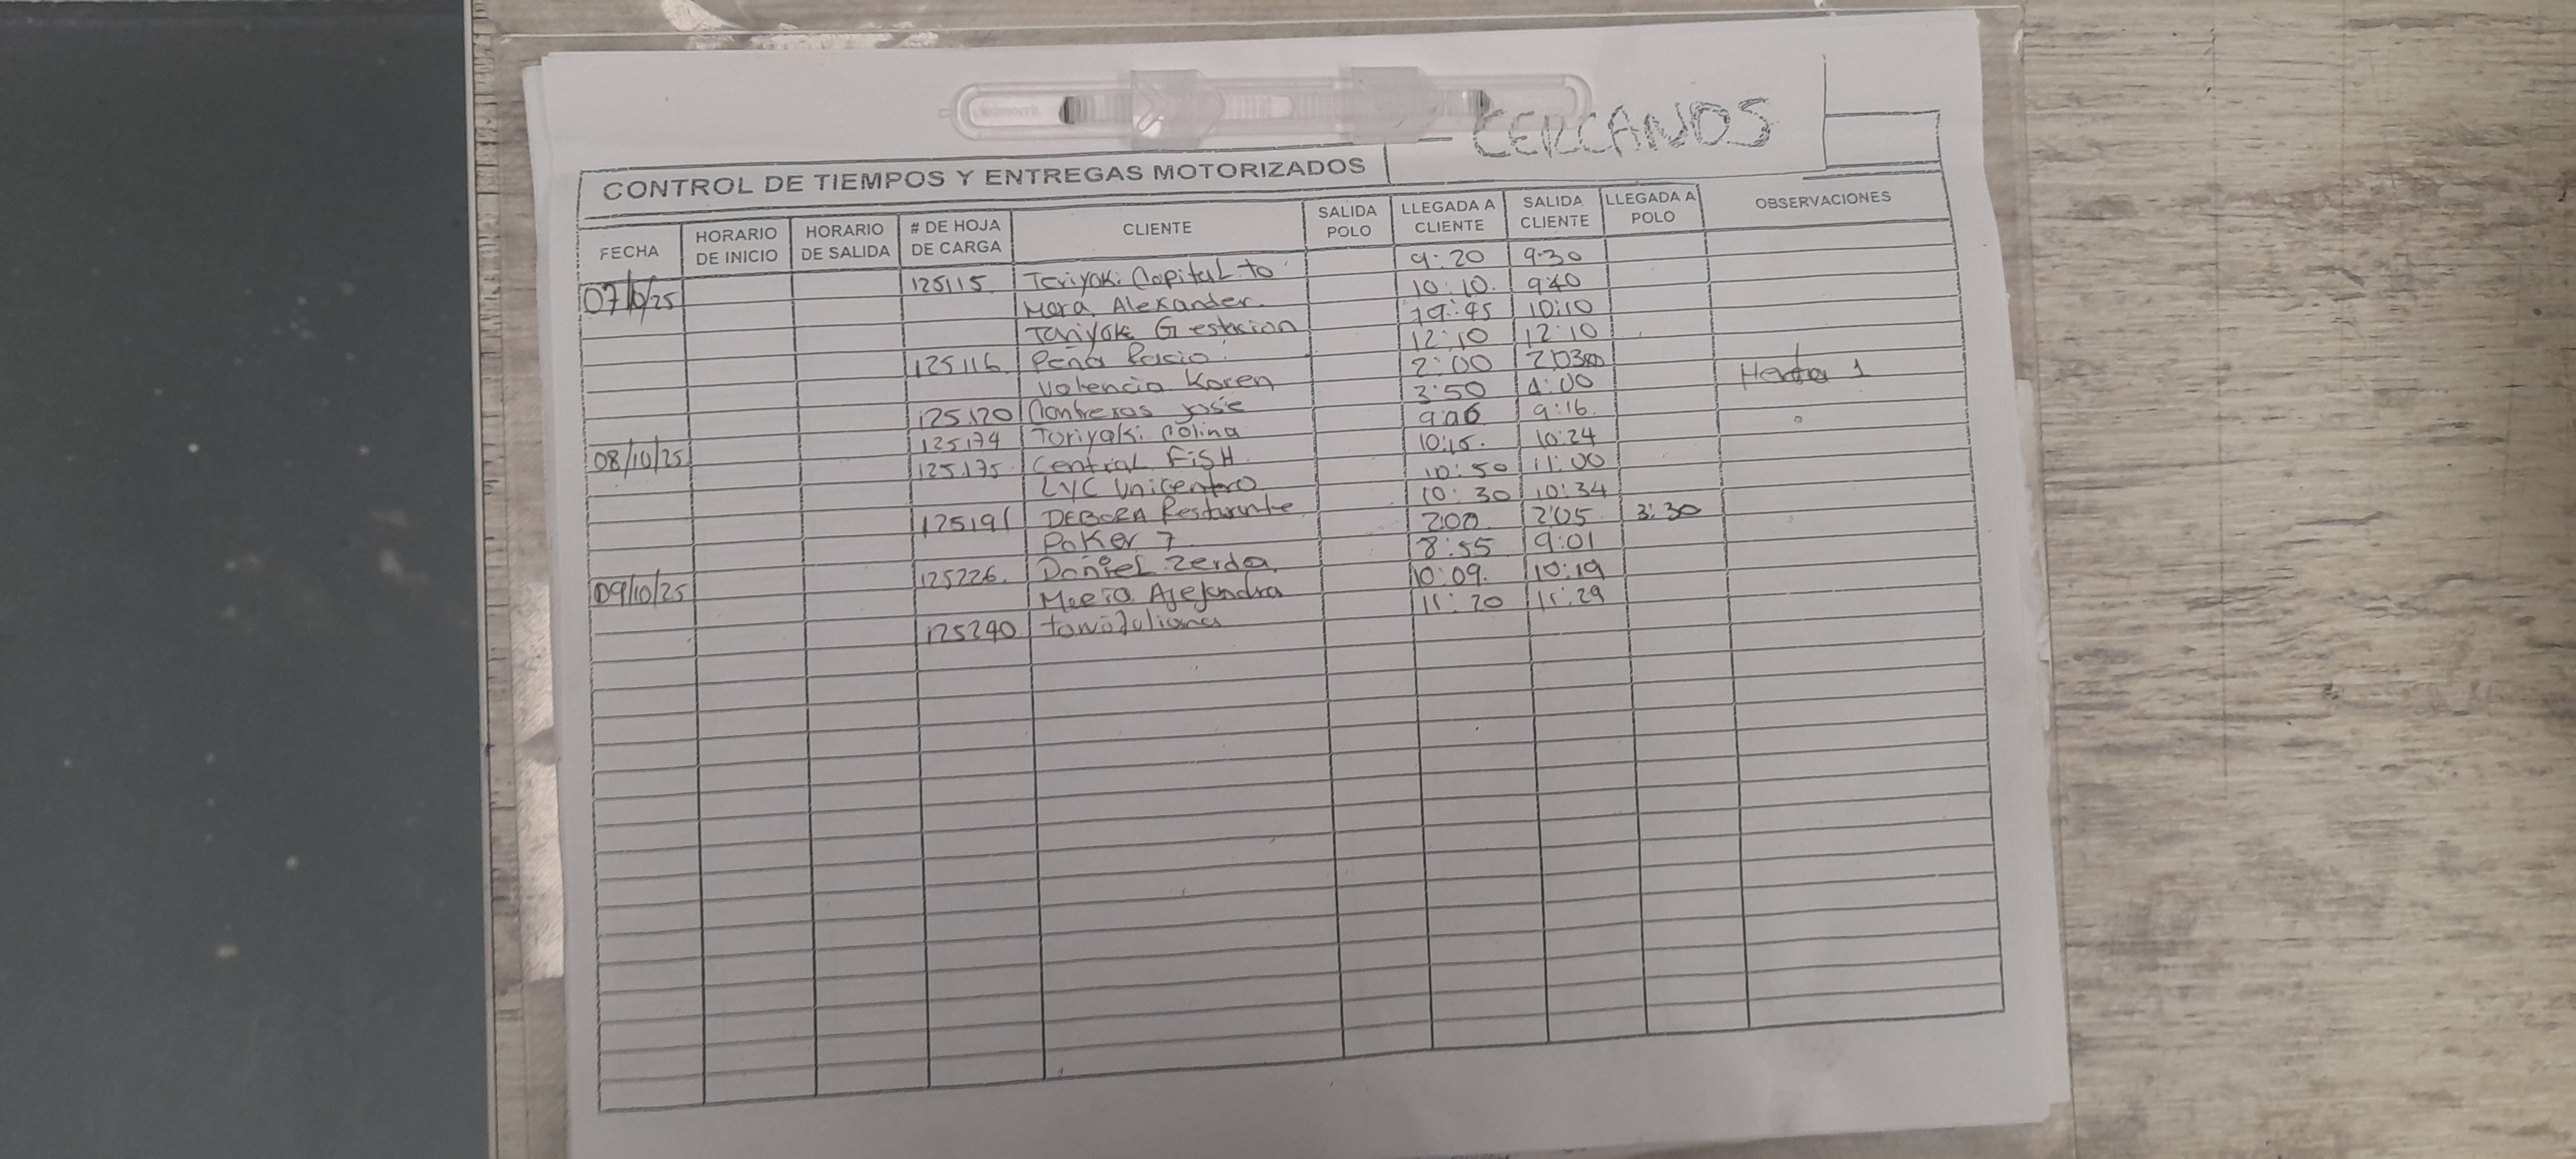 CERCANOS
CONTROL DE TIEMPOS Y ENTREGAS MOTORIZADOS
FECHA HORARIO DE INICIO HORARIO DE SALIDA # DE HOJA DE CARGA CLIENTE SALIDA POLO LLEGADA A CLIENTE SALIDA CLIENTE LLEGADA A POLO OBSERVACIONES
07/10/25 125115 Teriyaki Capital to 9:20 9:30
Mora Alexander 10:10 9:40
Teriyaki G estacion 10:10
125116 Peña 12:10 12:10
Valencia Karen 2:00
125120 Contreras Jose 3:50 4:00
08/10/25 125174 Teriyaki Colina 9:06 9:16
125175 Central FISH 10:15 10:24
LYC Unicentro 10:50 11:00
125191 DEBORA Resturante 10:30 10:34
Poker 7 2:00 2:05 3:30
09/10/25 125226 Daniel Zerda 8:55 9:01
Alejandra 10:09 10:19
125240 11:20 11:29